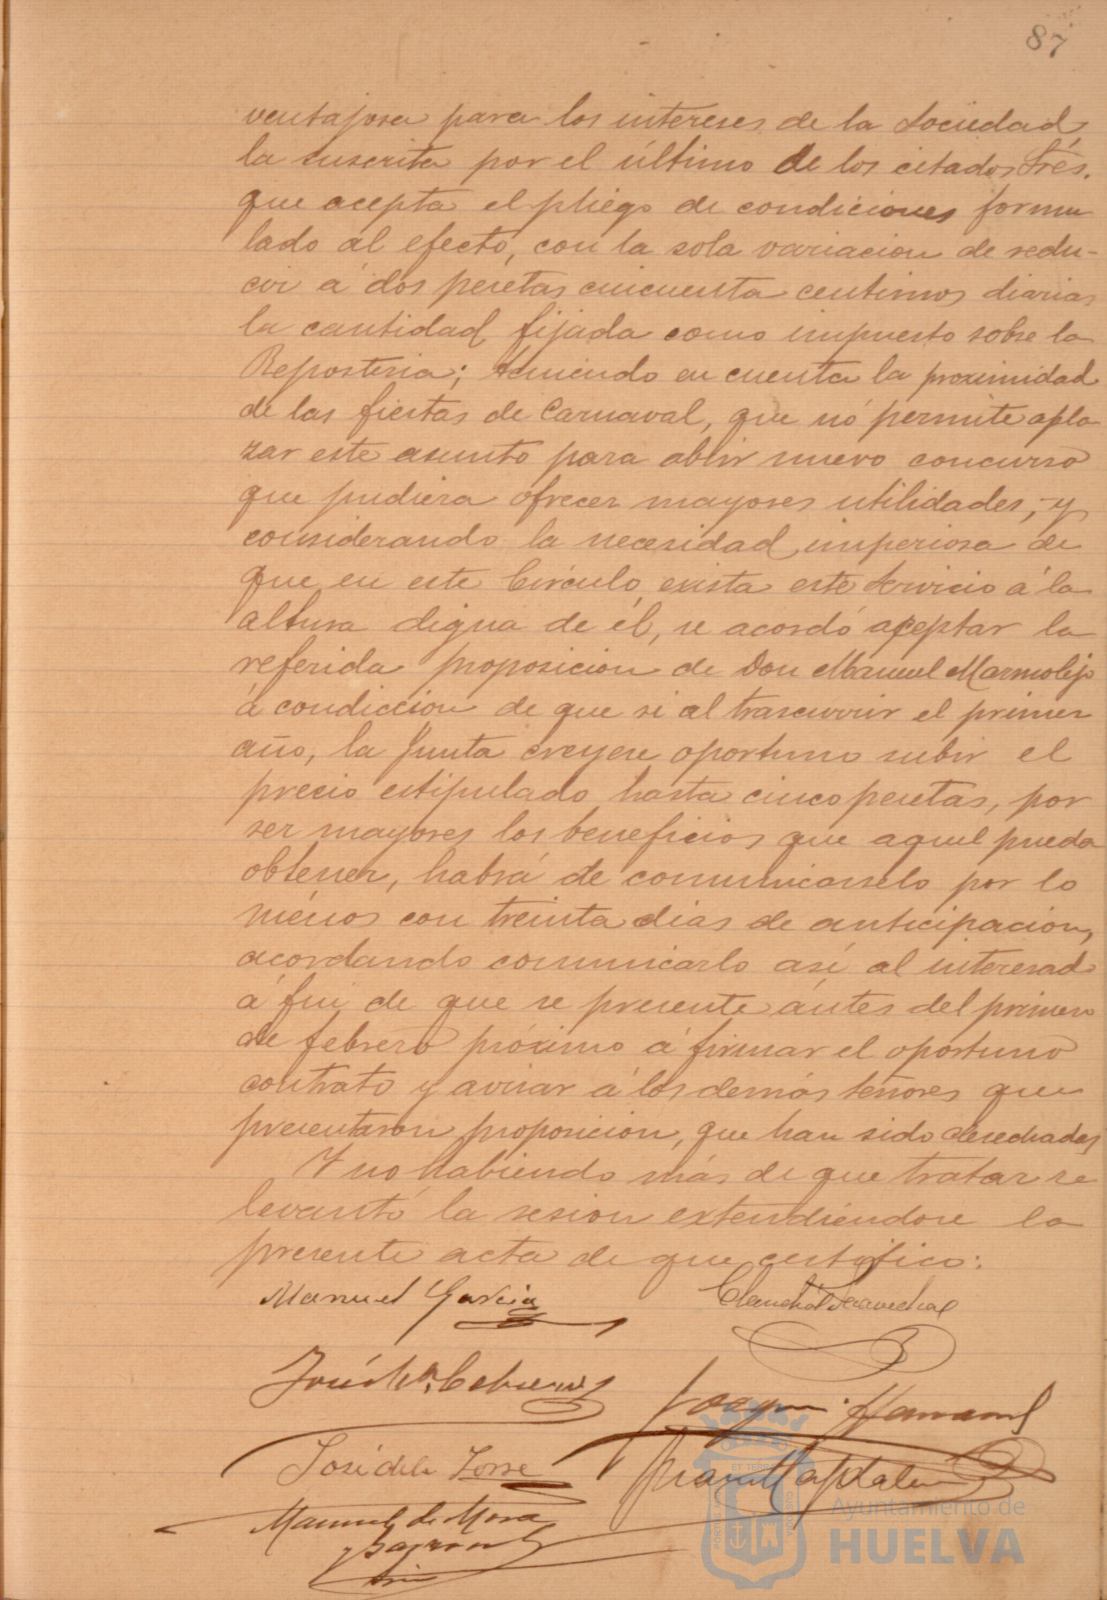 87
ventajosa para los intereses de la Sociedad,
la suscrita por el último de los citados Srés.
que acepta el pliego de condiciones formu
lado al efecto, con la sola variacion de redu-
cir á dos pesetas cincuenta centimos diarias
la cantidad fijada como impuesto sobre la
Reposteria; teniendo en cuenta la proximidad
de las fiestas de Carnaval, que nó permite apla
zar este asunto para abrir nuevo concurso
que pudiera ofrecer mayores utilidades; y
considerando la necesidad imperiosa de
que en este Círculo exista este servicio á la
altura digna de él, se acordó aceptar la
referida proposicion de Don Manuel Marmolejo
á condiccion de que si al trascurrir el primer
año, la Junta creyese oportuno subir el
precio estipulado hasta cinco pesetas, por
ser mayores los beneficios que aquel pueda
obtener, habrá de comunicarselo por lo
ménos con treinta dias de anticipacion,
acordando comunicarlo así al interesado
á fin de que se presente ántes del primero
de febrero próximo á firmar el oportuno
contrato y avisar á los demás señores que
presentaron proposicion, que han sido desechadas
Y no habiendo más de que tratar se
levantó la sesion extendiéndose la
presente acta de que certifico:
Manuel Garcia
Claudio Saavedra
José de la Torre
Manuel de Mora
Ayuntamiento de
HUELVA